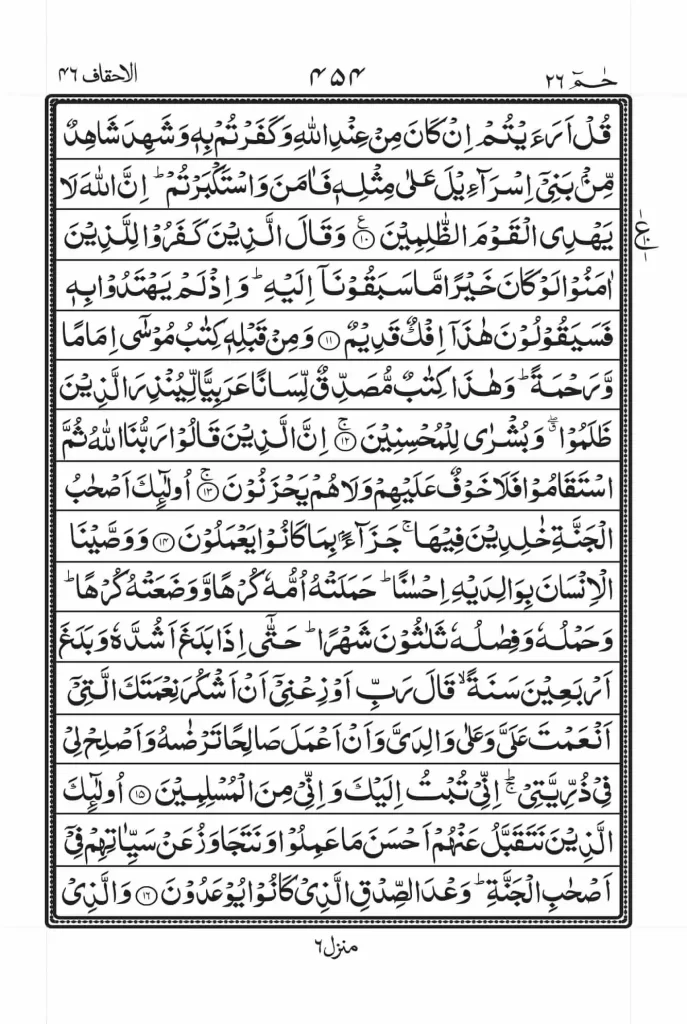 حٰـمٓ ٢٦
٤٥٤
الاحقاف ٤٦
قُلْ اَرَءَيْتُمْ اِنْ كَانَ مِنْ عِنْدِ اللّٰهِ وَكَفَرْتُمْ بِهٖ وَشَهِدَ شَاهِدٌ
مِّنْۢ بَنِيْٓ اِسْرَآءِيْلَ عَلٰى مِثْلِهٖ فَاٰمَنَ وَاسْتَكْبَرْتُمْ ؕ اِنَّ اللّٰهَ لَا
يَهْدِى الْقَوْمَ الظّٰلِمِيْنَ ۧ ⑩ وَقَالَ الَّذِيْنَ كَفَرُوْا لِلَّذِيْنَ
اٰمَنُوْا لَوْ كَانَ خَيْرًا مَّا سَبَقُوْنَآ اِلَيْهِ ؕ وَاِذْ لَمْ يَهْتَدُوْا بِهٖ
فَسَيَقُوْلُوْنَ هٰذَآ اِفْكٌ قَدِيْمٌ ⑪ وَمِنْ قَبْلِهٖ كِتٰبُ مُوْسٰٓى اِمَامًا
وَّرَحْمَةً ؕ وَهٰذَا كِتٰبٌ مُّصَدِّقٌ لِّسَانًا عَرَبِيًّا لِّيُنْذِرَ الَّذِيْنَ
ظَلَمُوْا ۖۗ وَبُشْرٰى لِلْمُحْسِنِيْنَ ۚ ⑫ اِنَّ الَّذِيْنَ قَالُوْا رَبُّنَا اللّٰهُ ثُمَّ
اسْتَقَامُوْا فَلَا خَوْفٌ عَلَيْهِمْ وَلَا هُمْ يَحْزَنُوْنَ ۚ ⑬ اُولٰٓئِكَ اَصْحٰبُ
الْجَنَّةِ خٰلِدِيْنَ فِيْهَا ۚ جَزَآءًۢ بِمَا كَانُوْا يَعْمَلُوْنَ ⑭ وَوَصَّيْنَا
الْاِنْسَانَ بِوَالِدَيْهِ اِحْسٰنًا ؕ حَمَلَتْهُ اُمُّهٗ كُرْهًا وَّوَضَعَتْهُ كُرْهًا ؕ
وَحَمْلُهٗ وَفِصٰلُهٗ ثَلٰثُوْنَ شَهْرًا ؕ حَتّٰٓى اِذَا بَلَغَ اَشُدَّهٗ وَبَلَغَ
اَرْبَعِيْنَ سَنَةً ۙ قَالَ رَبِّ اَوْزِعْنِيْٓ اَنْ اَشْكُرَ نِعْمَتَكَ الَّتِيْٓ
اَنْعَمْتَ عَلَيَّ وَعَلٰى وَالِدَيَّ وَاَنْ اَعْمَلَ صَالِحًا تَرْضٰىهُ وَاَصْلِحْ لِيْ
فِيْ ذُرِّيَّتِيْ ۚؕ اِنِّيْ تُبْتُ اِلَيْكَ وَاِنِّيْ مِنَ الْمُسْلِمِيْنَ ⑮ اُولٰٓئِكَ
الَّذِيْنَ نَتَقَبَّلُ عَنْهُمْ اَحْسَنَ مَا عَمِلُوْا وَنَتَجَاوَزُ عَنْ سَيِّاٰتِهِمْ فِيْٓ
اَصْحٰبِ الْجَنَّةِ ؕ وَعْدَ الصِّدْقِ الَّذِيْ كَانُوْا يُوْعَدُوْنَ ⑯ وَالَّذِيْ
منزل ٦